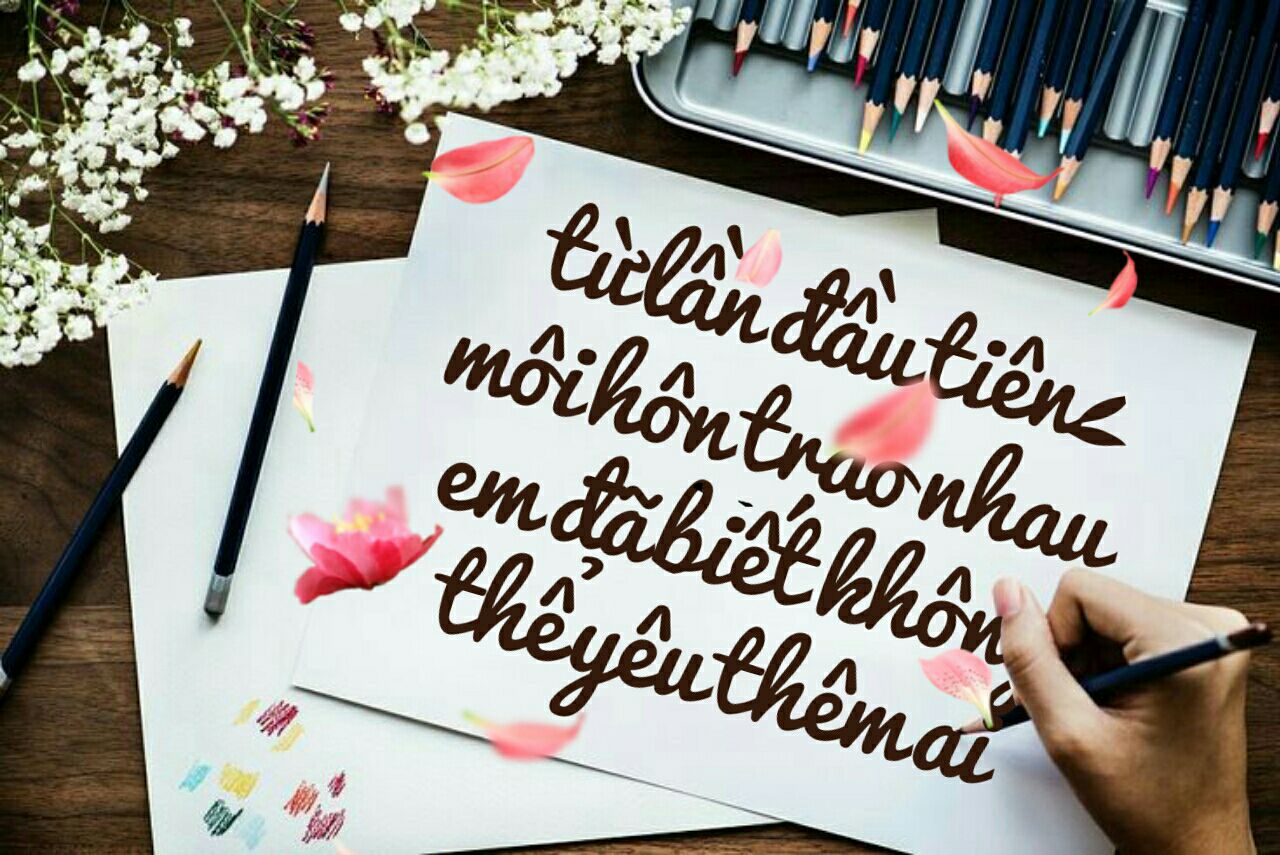 từ lần đầu tiên
môi hôn trao nhau
em đã biết không
thể yêu thêm ai